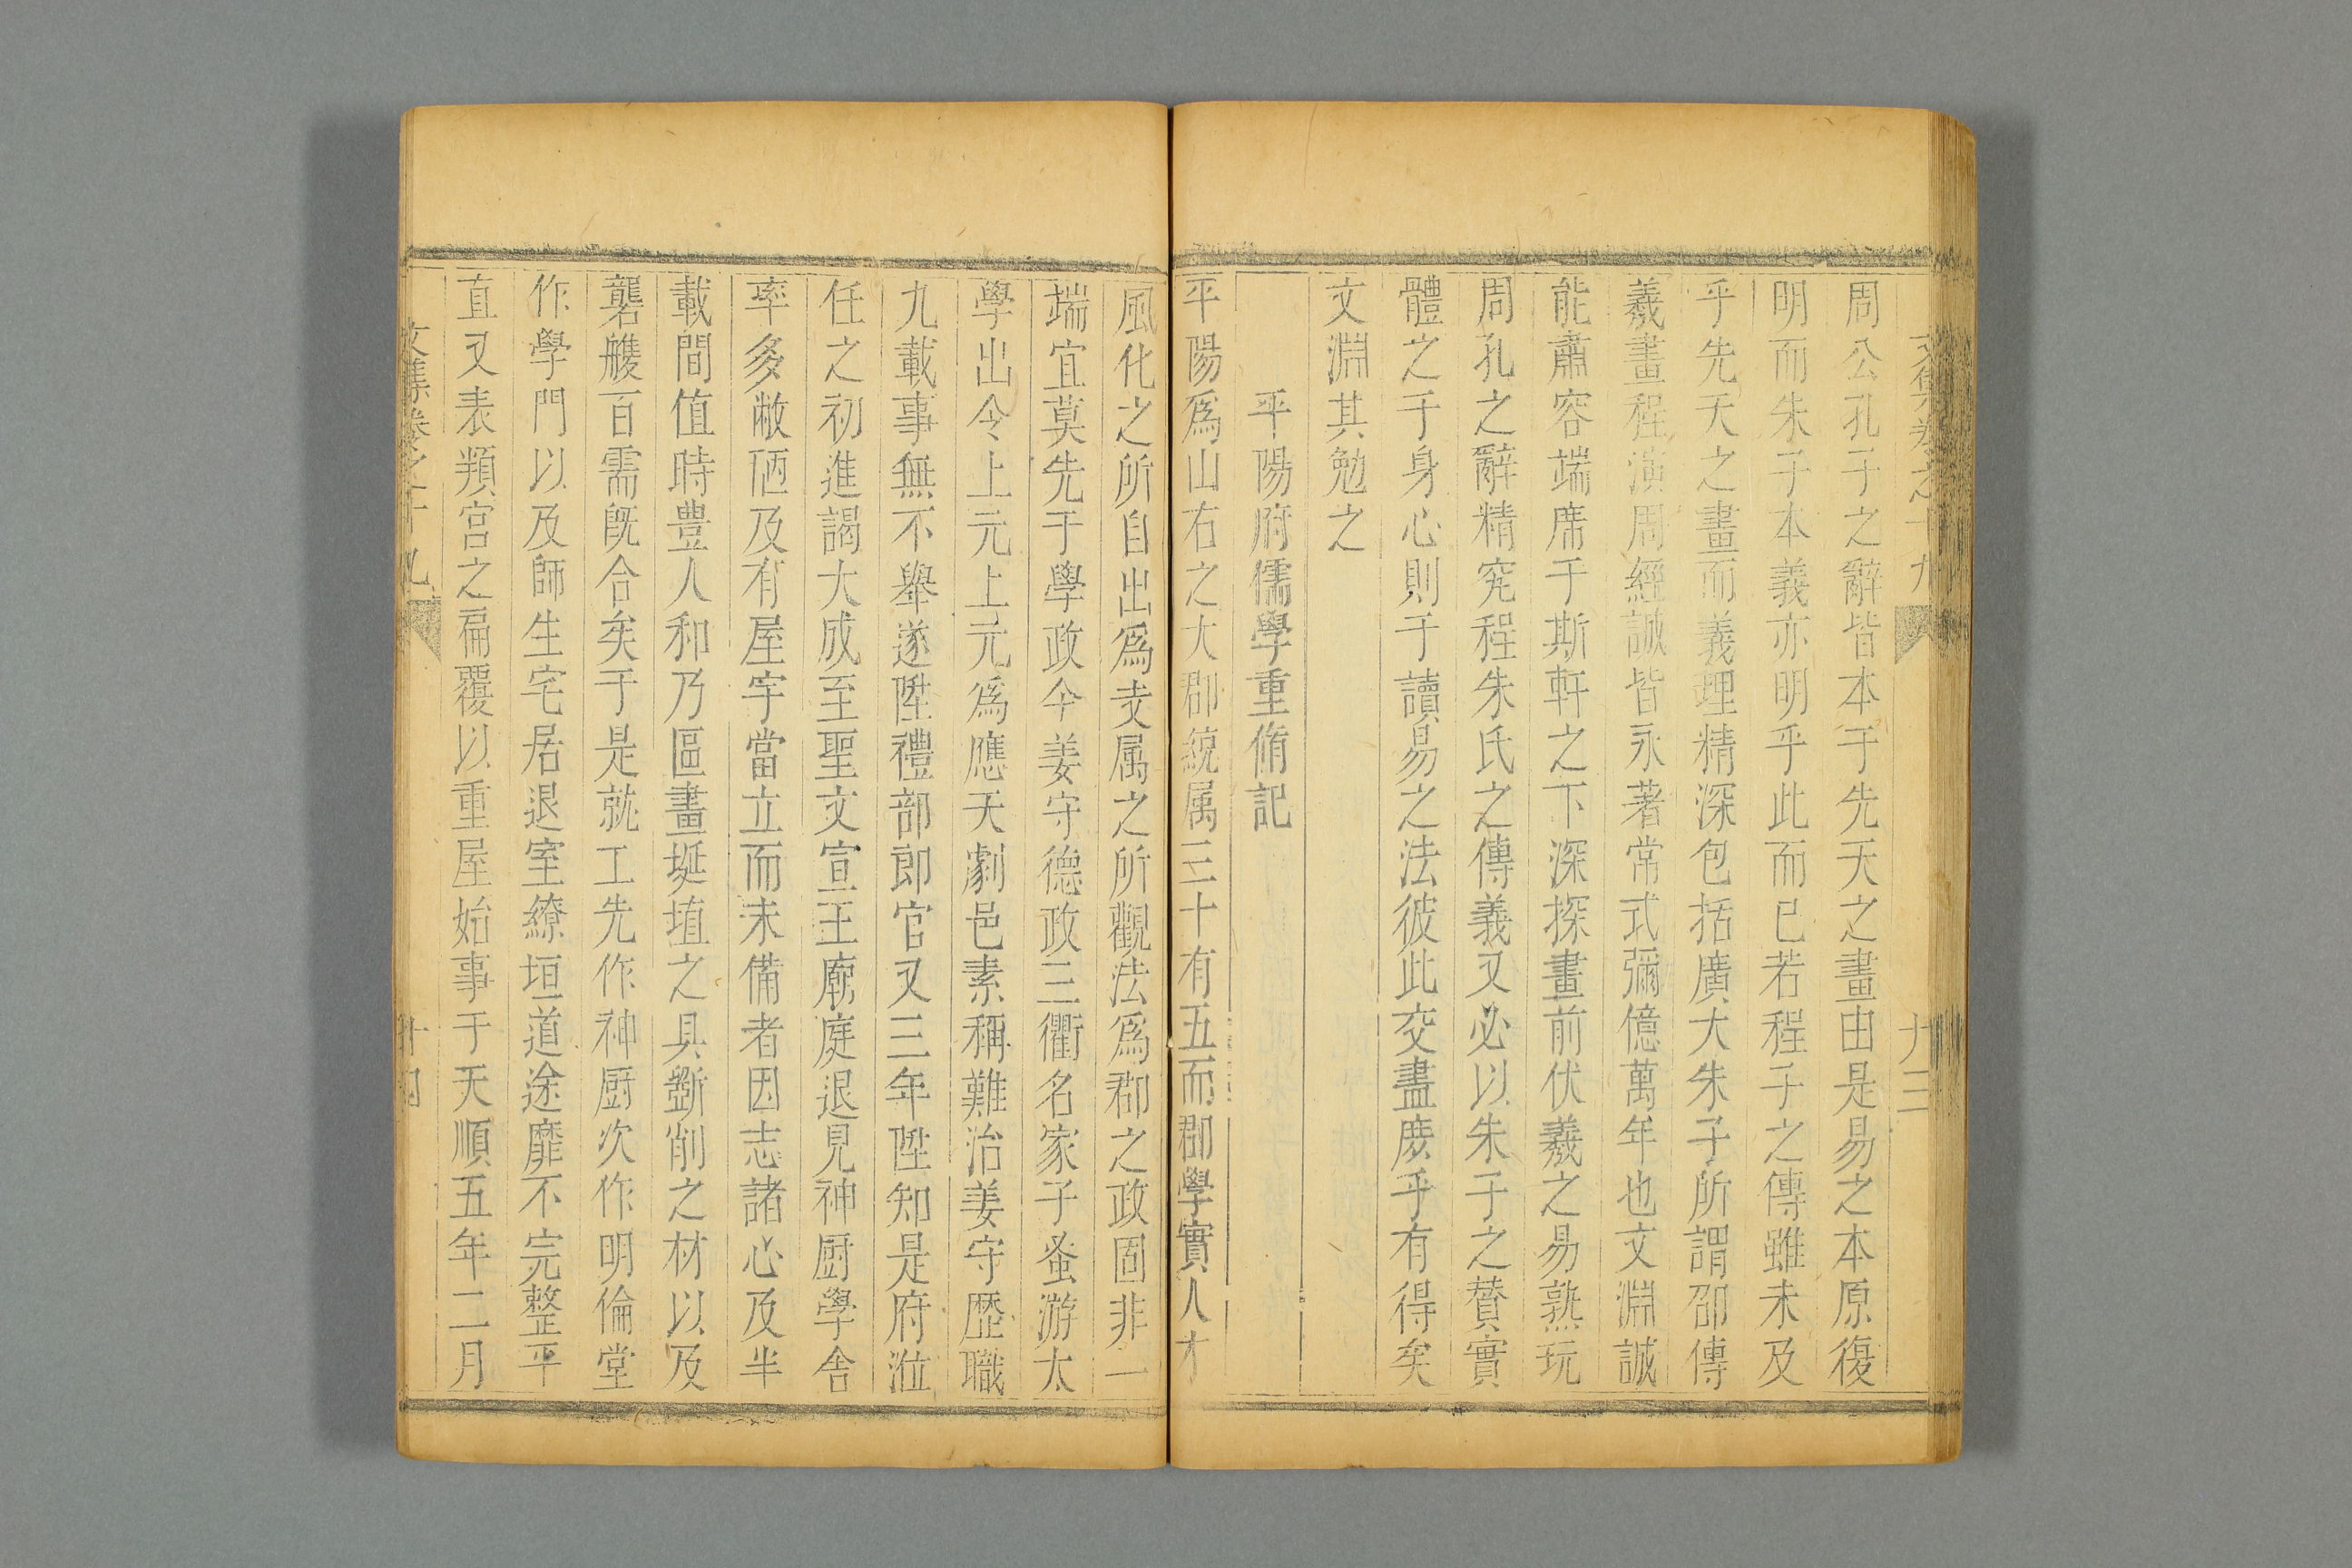 文集卷之十九
十三
周公孔子之辭皆本于先天之畫由是易之本原復
明而朱子本義亦明乎此而已若程子之傳雖未及
乎先天之畫而義理精深包括廣大朱子所謂邵傳
羲畫程演周經誠皆永著常式彌億萬年也文淵誠
能肅容端席于斯軒之下深探畫前伏羲之易熟玩
周孔之辭精究程朱氏之傳義又必以朱子之賛實
體之于身心則于讀易之法彼此交盡庶乎有得矣
文淵其勉之
平陽府儒學重脩記
平陽爲山右之大郡統属三十有五而郡學實人才
風化之所自出爲支属之所觀法爲郡之政固非一
端宜莫先于學政今姜守德政三衢名家子蚤游太
學出令上元上元爲應天劇邑素稱難治姜守歴職
九載事無不舉遂陞禮部郎官又三年陞知是府涖
任之初進謁大成至聖文宣王廟庭退見神厨學舎
率多敝陋及有屋宇當立而未備者因志諸心及半
載間值時豊人和乃區畫埏埴之具斵削之材以及
礱艧百需旣合矣于是就工先作神厨次作明倫堂
作學門以及師生宅居退室繚垣道途靡不完整平
直又表頖宮之扁覆以重屋始事于天順五年二月
文集卷之十九
十四